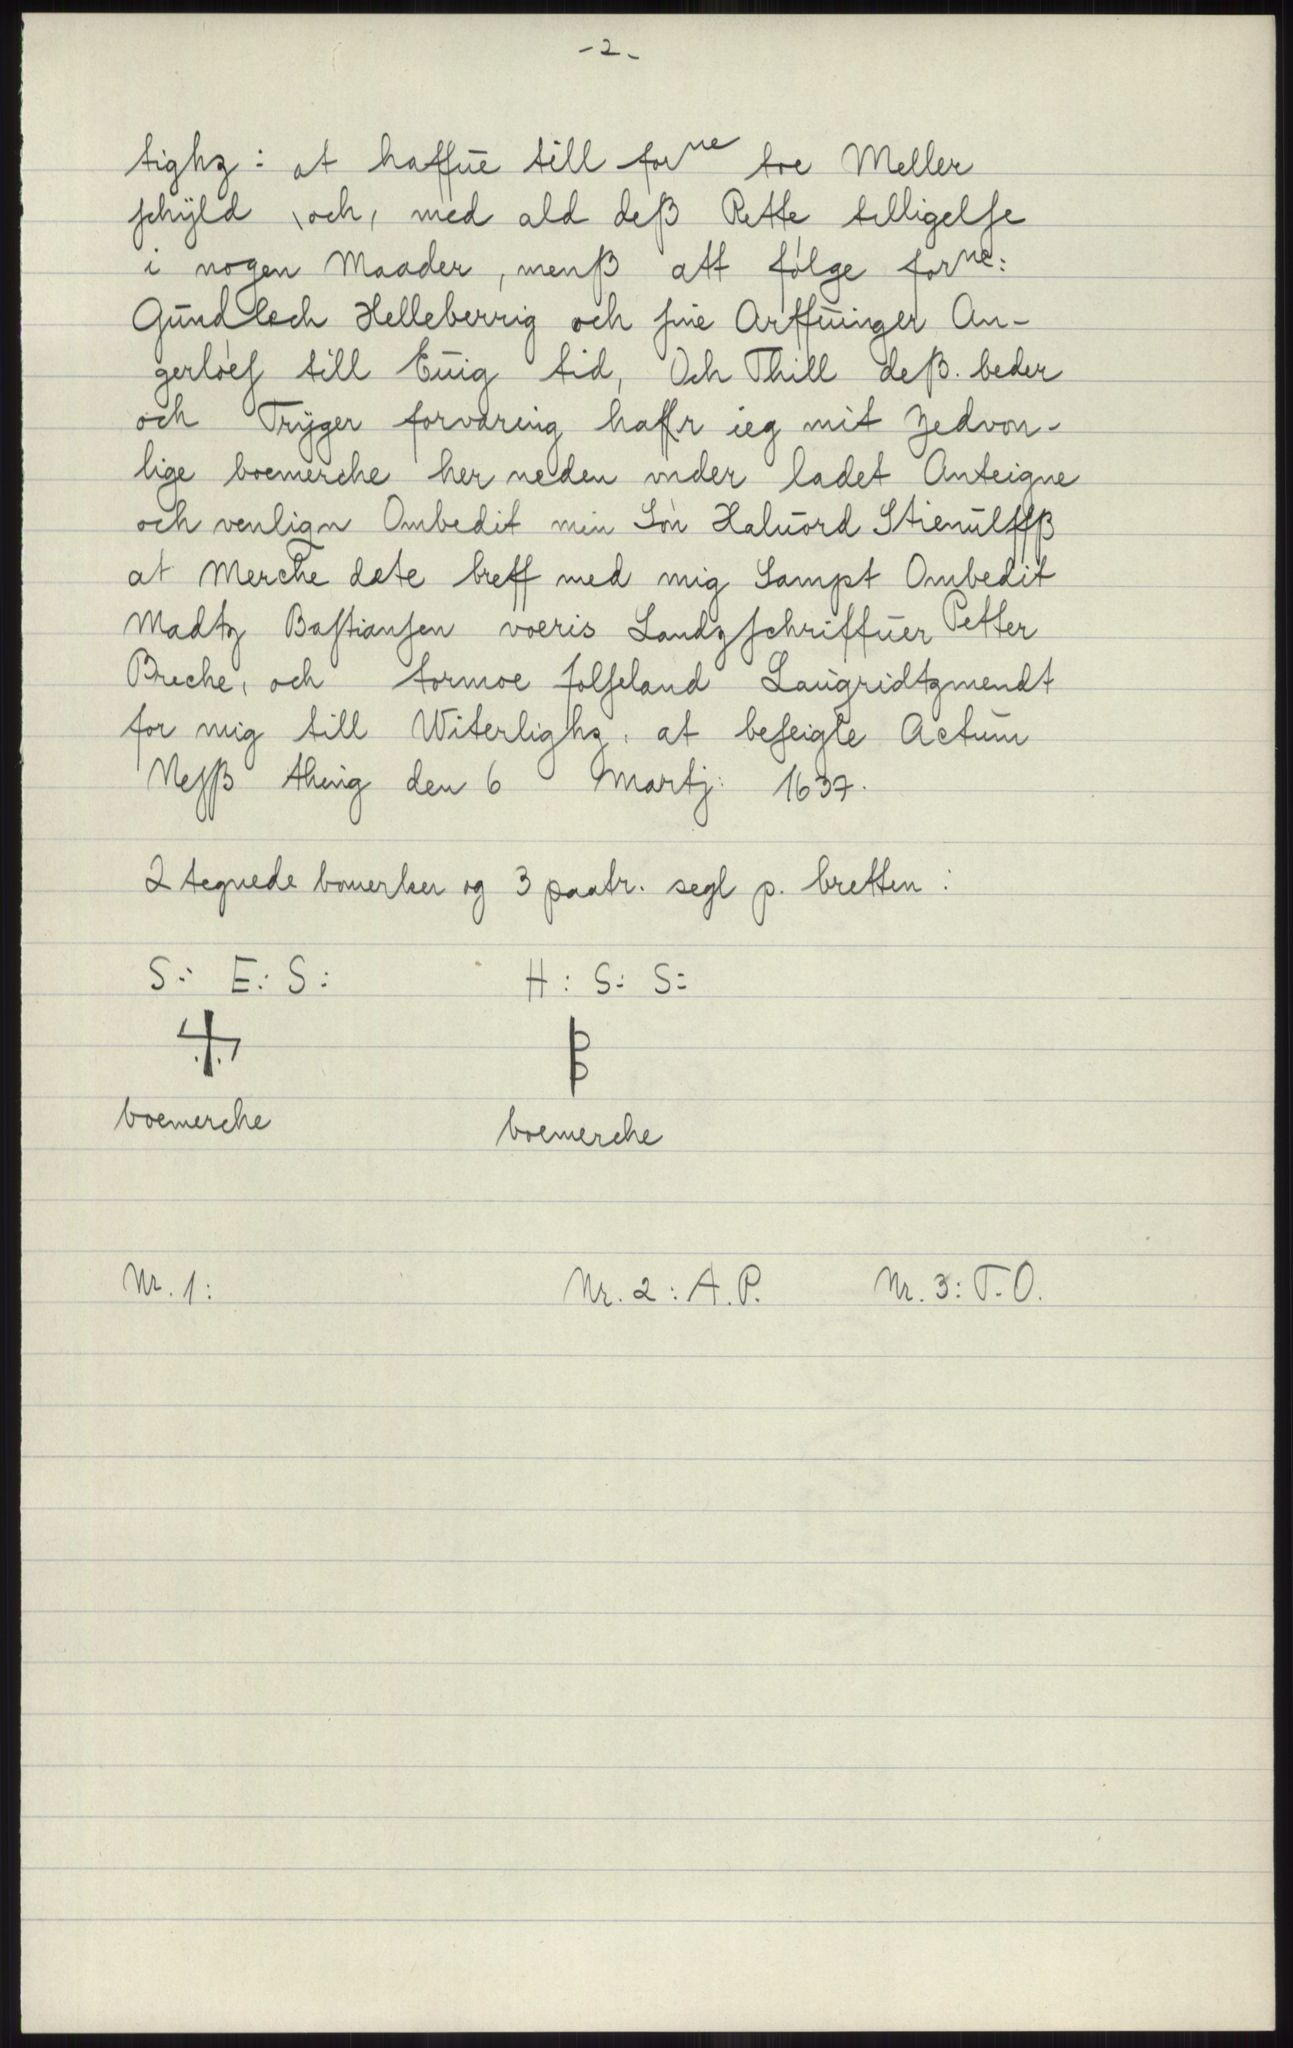 - 2 -
tighz: at haffue till forne toe Meller
schÿld och, med ald deß Rette telligelse
i nogen Maader, menß att følge forne:
Gundlech Helleberrig och sine Arffuinger An-
gerløes till Euig tid, Och Thill deß. beder
och Trÿger forvaring haffr ieg mit Zedvon-
lige boemerche her neden vnder ladet Anteigne
och venlign Ombedit min Søn Haluord Stienulffß
at Merche dete breff med mig Sampt Ombedit
Madtz Bastiansen voeris Landzschriffuer Petter
Breche, och tormoe folseland Laugridtzmendt
for mig till Witerlighz. at beseigle Actum
Neſß thing den 6 Martj: 1637.
2 tegnede bomerker og 3 paatr. segl p. bretten:
S: E: S: H: S: S:
boemerche
boemerche
Nr. 1: Nr. 2: A.P. Nr. 3: T.O.